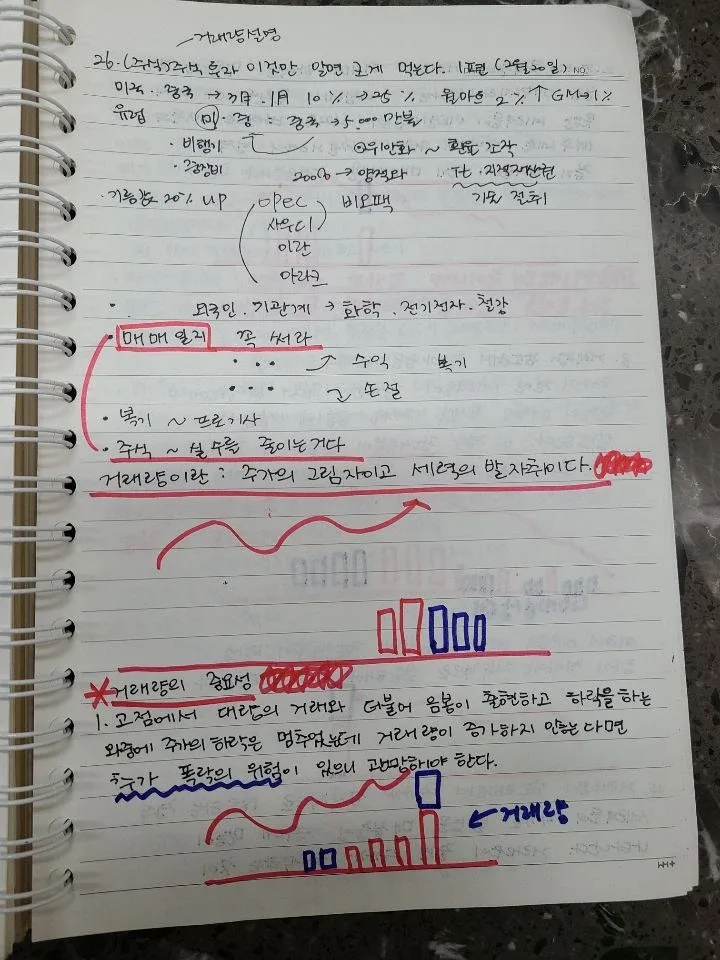 거래량설명
26. (주식)주식 투자 이것만 알면 크게 먹는다. 1편 (2월20일) NO.
미국. 중국 → 관세. 1月 10% → 25% 월마트 2%↑ GM→1%
유럽 미. 중 : 중국 → 5,000만불
· 비행기 ⊙위안화 ~ 환율 조작
· 공장비 2000% → 양적완화 IT. 지적재산권
· 기름값 20% UP opec 비오팩 기술 절취
사우디
이란
이라크
· 외국인. 기관계 → 화학. 전기전자. 철강
· 매매일지 꼭 써라
··· 수익 복기
··· 손절
· 복기 ~ 프로기사
· 주식 ~ 실수를 줄이는거다
거래량이란 : 주가의 그림자이고 세력의 발자취이다.
*거래량의 중요성
1. 고점에서 대량의 거래와 더불어 음봉이 출현하고 하락을 하는
와중에 주가의 하락은 멈추었는데 거래량이 증가하지 않는다면
주가 폭락의 위험이 있으니 관망해야 한다.
← 거래량